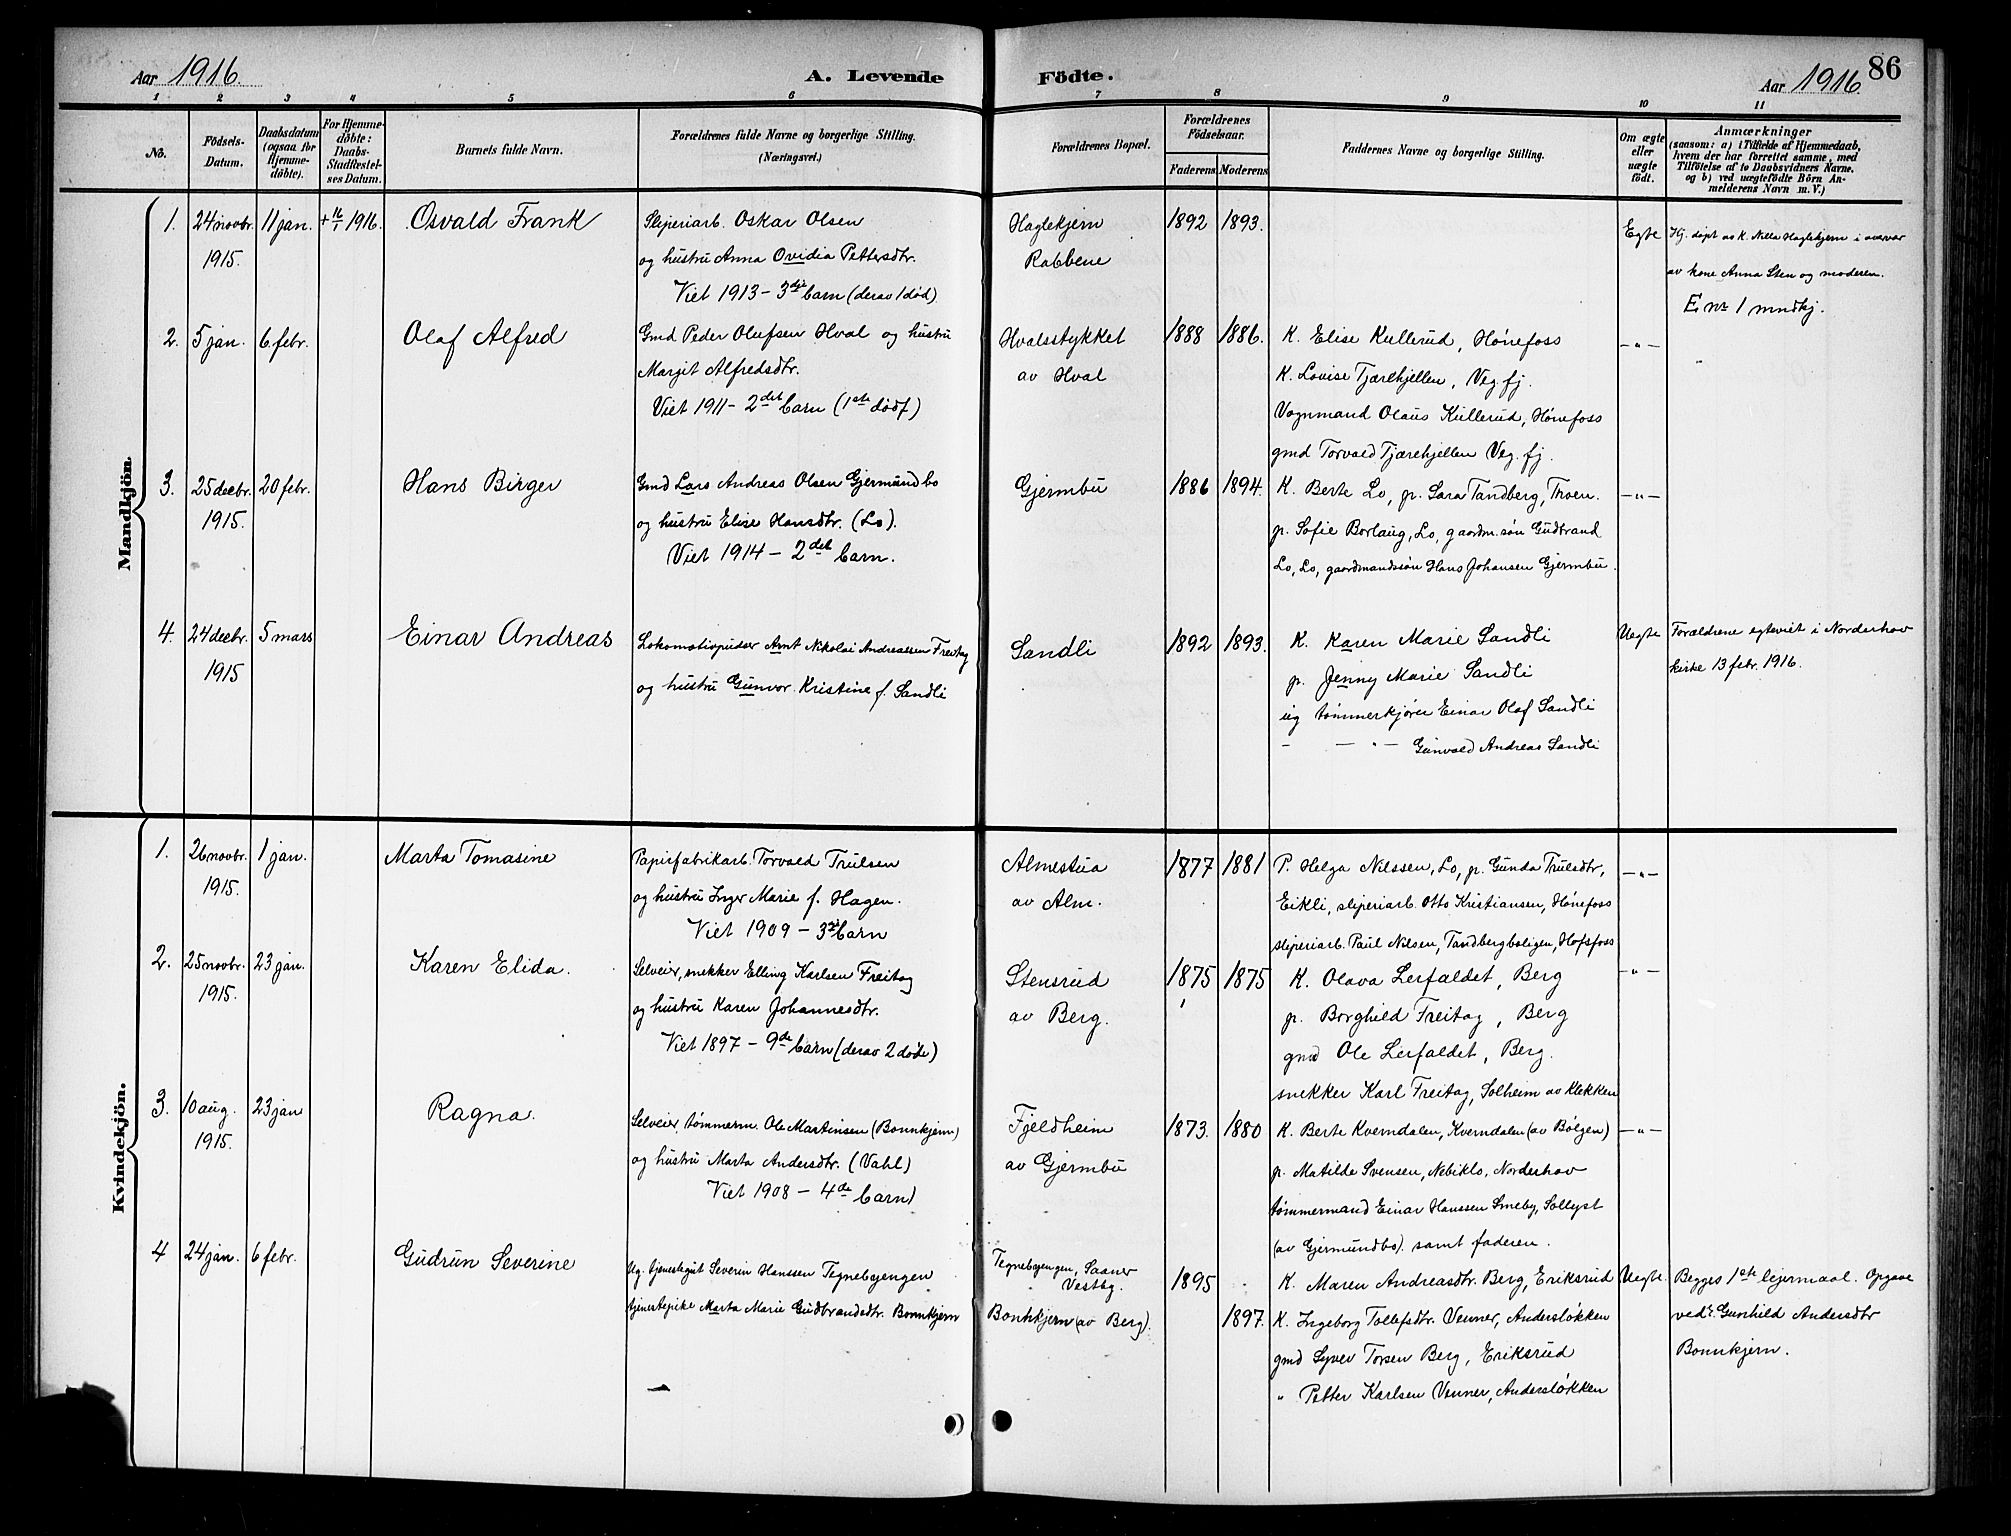 Aar 1916.
A. Levende Födte.
Aar 1916.
86
1 2 3 4 5 6 7 8 9 10 11
No.
Födsels-Datum.
Daabsdatum (ogsaa for Hjemmedöbte).
For Hjemmedöbte: Daabs-Stadfæstelses Datum.
Barnets fulde Navn.
Forældrenes fulde Navne og borgerlige Stilling.
(Næringsvei.)
Forældrenes Bopæl.
Forældrenes Födselsaar.
Faderens. Moderens.
Faddernes Navne og borgerlige Stilling.
Om ægte eller uægte födt.
Anmærkninger
(saasom: a) i Tilfælde af Hjemmedaab, hvem der har forrettet samme, med Tilföielse af to Daabsvidners Navne, og b) ved uægtefödte Börn Anmelderens Navn m. V.)
Mandkjön.
1. 24 novbr. 1915. 11 jan. + 16/1 1916. Osvald Frank
Sliperiarb. Oskar Olsen
og hustru Anna Ovidia Pettersdtr.
Viet 1913 – 3die barn (derav 1 død)
Haglekjern
Rabbene
1892 1893.
Egte
Hj. døpt av K. Nilla Haglekjern i overvær
av kone Anna Sten og moderen.
E. nr 1 mndkj.
2. 5 jan. 6 febr. Olaf Alfred
Gmd Peder Olufsen Hval og hustru
Margit Alfredsdtr.
Viet 1911 – 2det barn (1ste dødf)
Hvalsstykket
av Hval
1888 1886.
K. Elise Kullerud, Hønefoss
K. Lovise Tjærehjellen, Veg. fj.
Vognmand Olaus Kullerud, Hønefoss
gmd Torvald Tjærehjellen Veg. fj.
— „ —
3. 25 decbr. 1915. 20 febr. Hans Birger
Gmd Lars Andreas Olsen Gjermundbo
og hustru Elise Hansdtr. (Lo).
Viet 1914 – 2det barn.
Gjermbu
1886 1894.
K. Berte Lo, p. Sara Tandberg, Thoen.
p. Sofie Borlaug, Lo, gaardm. søn Gudbrand
Lo, Lo, gaardmandssøn Hans Johansen Gjermbu.
— „ —
4. 24 decbr. 1915 5 mars Einar Andreas
Lokomotivpudser Arnt Nikolai Andreassen Freitag
og hustru Gunvor Kristine f. Sandli
Sandli
1892 1893.
K. Karen Marie Sandli
p. Jenny Marie Sandli
ug tømmerkjører Einar Olaf Sandli
– — „ — Gunvald Andreas Sandli
Uegte
Forældrene egteviet i Norderhov
kirke 13 febr. 1916.
Kvindekjön.
1. 26 novbr. 1915. 1 jan. Marta Tomasine
Papirfabrikarb. Torvald Trulsen
og hustru Inger Marie f. Hagen.
Viet 1909 – 3die barn
Almestua
av Alm.
1877 1881
P. Helga Nilssen, Lo, p. Gunda Trulsdtr,
Eikli, sliperiarb. Otto Kristiansen, Hønefoss
sliperiarb. Paul Nilsen, Tandbergboligen, Hofsfoss
— „ —
2. 25 novbr. 1915. 23 jan. Karen Elida.
Selveier, snekker Elling Karlsen Freitag
og hustru Karen Johannesdtr.
Viet 1897 – 9de barn (derav 2 døde)
Stensrud
av Berg.
1875 1875
K. Olava Lerfaldet, Berg
p. Borghild Freitag, Berg
gmd Ole Lerfaldet, Berg.
snekker Karl Freitag, Solheim av Klekken
— „ —
3. 10 aug. 1915. 23 jan Ragna.
Selveier, tømmerm. Ole Martinsen (Bonnkjern)
og hustru Marta Andersdtr. (Vahl)
Viet 1908 – 4de barn)
Fjeldheim
av Gjermbu
1873. 1880
K. Berte Kverndalen, Kverndalen (av Bølgen)
p. Matilde Svensen, Nebiklo, Norderhov
tømmermand Einar Hanssen Smeby, Sollyst
(av Gjermundbo). samt faderen.
— „ —
4 24 jan. 6 febr. Gudrun Severine
Ug. tjenestegut Severin Hanssen Tegnebøengen
tjenestepike Marta Marie Gudbrandsdtr. Bonnkjern
Tegnebøengen, Saaner
Vestby.
Bonnkjern (av Berg).
1895
1897.
K. Maren Andreasdtr. Berg, Eriksrud
K. Ingeborg Tollefsdtr. Venner, Andersløkken
gmd Syver Torsen Berg, Eriksrud
„ Petter Karlsen Venner, Andersløkken
Uegte.
Begges 1ste leiermaal. Opgave
ved: Gunhild Andersdtr
Bonnkjern.